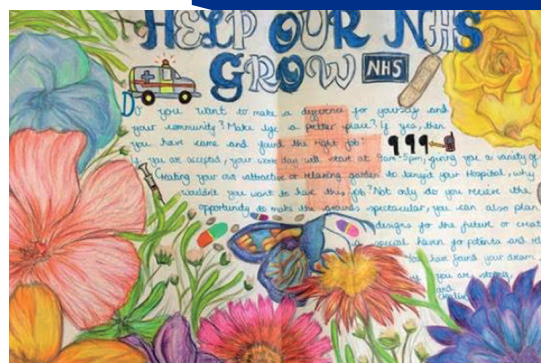 HELP OUR NHS
GROW NHS
Do you want to make a difference for yourself and
your community? Make life a better place? If yes, then
you have come and found the right job!
999
If you are accepted, your work day will start at 9am-5pm, giving you a variety of
Creating your own attractive or relaxing garden to benefit your Hospital, why
wouldn't you want to have this job? Not only do you receive the
opportunity to make the grounds spectacular, you can also plan
designs for the future or creat
a special haven for patients and
You have found your dream
you are strong,
and
creative